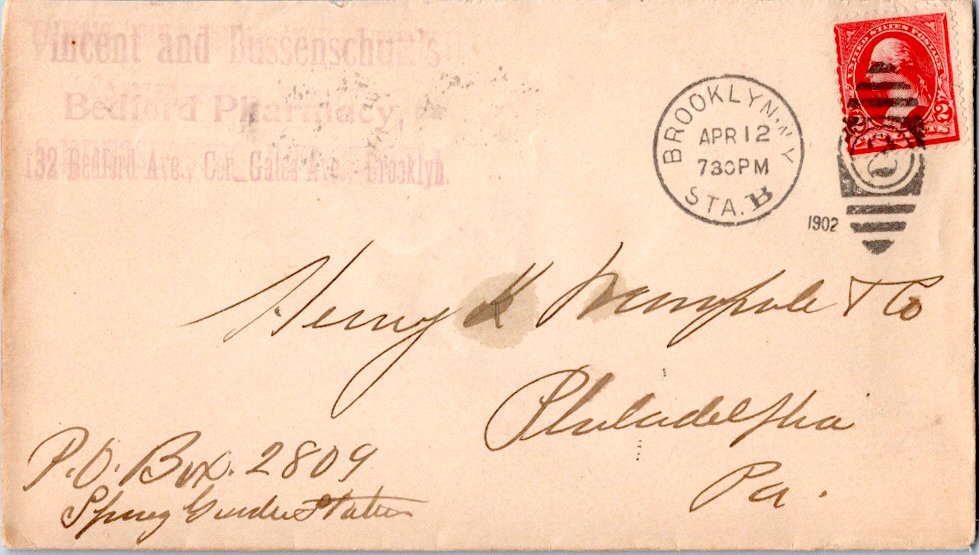 Vincent and Bussenschutt's
Bedford Pharmacy,
132 Bedford Ave., Cor. Gates Ave., Brooklyn.
BROOKLYN. N.Y.
APR 12
730 PM
STA. B
1902
UNITED STATES POSTAGE
2
Henry K Wampole & Co
Philadelphia
Pa.
P.O. Box. 2809
Spring Garden Station